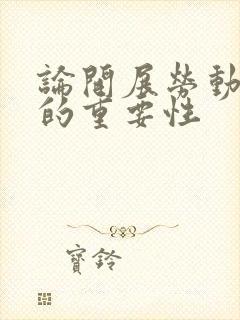 論開展勞動
的重要性
寶鈴